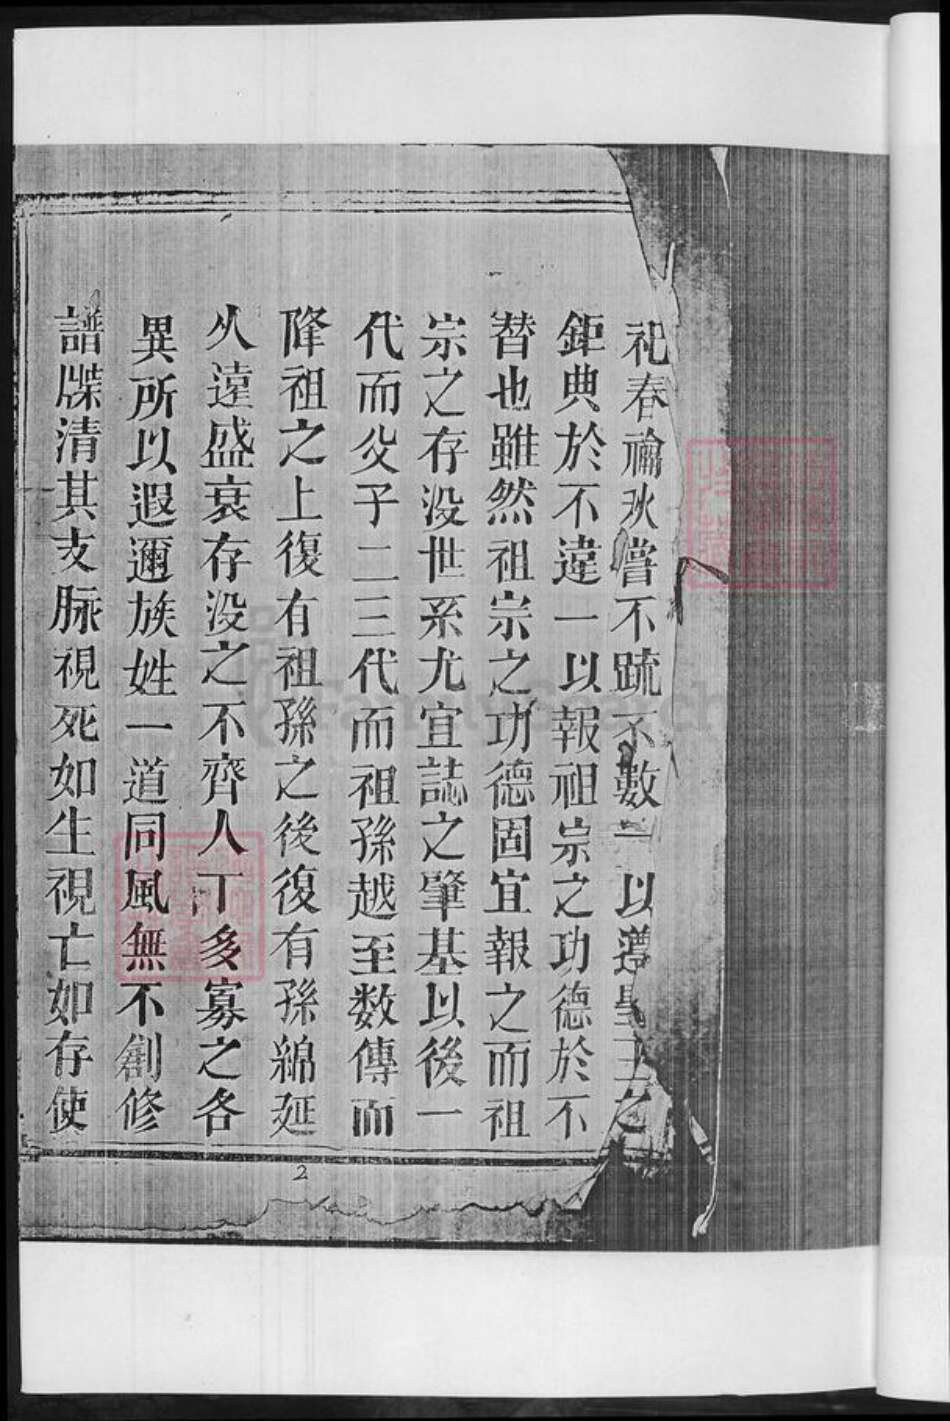 祀春禴秋嘗不疏不數一以遵聖王之
鉅典於不違一以報祖宗之功德於不
替也雖然祖宗之功德固宜報之而祖
宗之存没世系尤宜誌之肇基以後一
代而父子二三代而祖孫越至数傳而
降祖之上復有祖孫之後復有孫綿延
久遠盛衰存没之不齊人丁多寡之各
異所以遐邇族姓一道同風無不創修
譜牒清其支脉視死如生視亡如存使
2